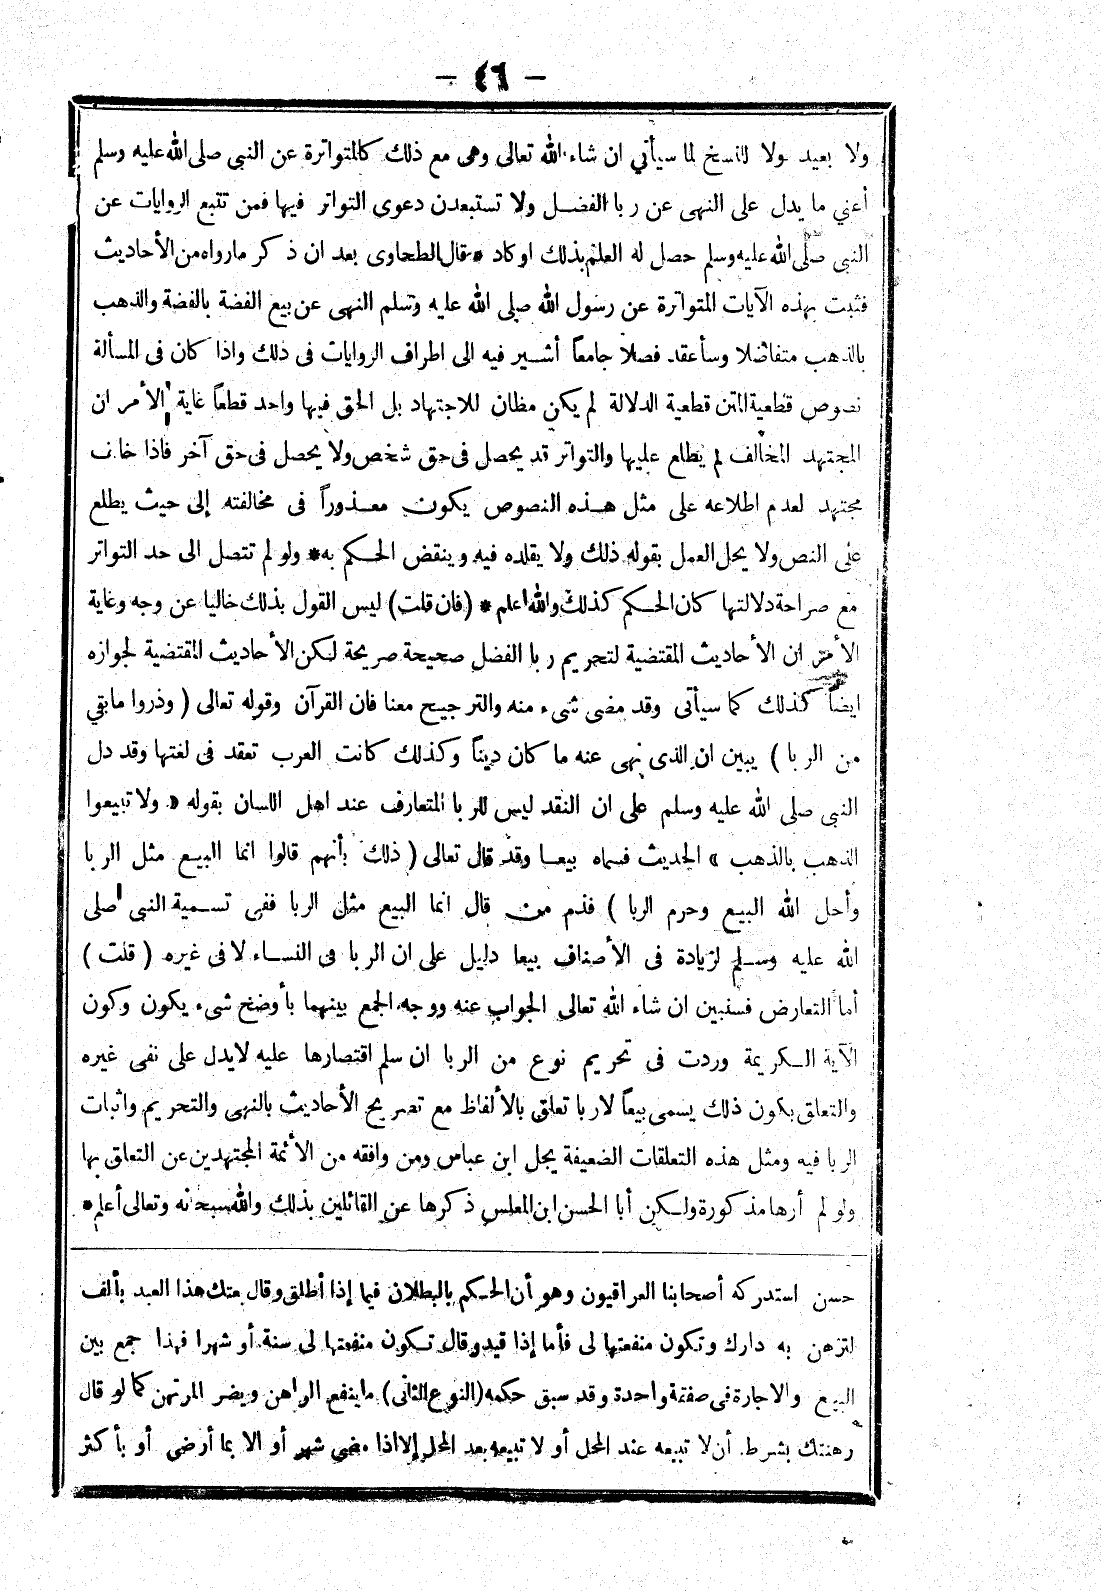 - ٤٦ -
ولا بعيد ولا للنسخ لما سيأتي ان شاء الله تعالى وهى مع ذلك كالمتواترة عن النبى صلى الله عليه وسلم
أعني ما يدل على النهى عن ربا الفضل ولا تستبعدن دعوى التواتر فيها فمن تتبع الروايات عن
النبى صلى الله عليه وسلم حصل له العلم بذلك او كاد * قال الطحاوى بعد ان ذكر مارواه من الأحاديث
فثبت بهذه الآيات المتواترة عن رسول الله صلى الله عليه وسلم النهى عن بيع الفضة بالفضة والذهب
بالذهب متفاضلا وسأعقد فصلا جامعاً أشير فيه الى اطراف الروايات فى ذلك واذا كان فى المسألة
نصوص قطعية المتن قطعية الدلالة لم يكن مظان للاجتهاد بل الحق فيها واحد قطعاً غاية الأمر ان
المجتهد المخالف لم يطلع عليها والتواتر قد يحصل فى حق شخص ولا يحصل فى حق آخر فاذا خالف
مجتهد لعدم اطلاعه على مثل هذه النصوص يكون معذوراً فى مخالفته إلى حيث يطلع
على النص ولا يحل العمل بقوله ذلك ولا يقلده فيه وينقض الحكم به * ولو لم تتصل الى حد التواتر
مع صراحة دلالتها كان الحكم كذلك والله أعلم * (فان قلت) ليس القول بذلك خاليا عن وجه وغاية
الأمر ان الأحاديث المقتضية لتحريم ربا الفضل صحيحة صريحة لكن الأحاديث المقتضية لجوازه
ايضاً كذلك كما سيأتى وقد مضى شىء منه والترجيح معنا فان القرآن وقوله تعالى ( وذروا مابقي
من الربا ) يبين ان الذى نهى عنه ما كان ديناً وكذلك كانت العرب تعقد فى لغتها وقد دل
النبى صلى الله عليه وسلم على ان النقد ليس للربا المتعارف عند اهل اللسان بقوله « ولا تبيعوا
الذهب بالذهب » الحديث فسماه بيعا وقد قال تعالى ( ذلك بأنهم قالوا انما البيع مثل الربا
وأحل الله البيع وحرم الربا ) فذم من قال انما البيع مثل الربا ففى تسمية النبى صلى
الله عليه وسلم لزيادة فى الأصناف بيعا دليل على ان الربا فى النساء لا فى غيره ( قلت )
أما التعارض فسنبين ان شاء الله تعالى الجواب عنه ووجه الجمع بينهما بأوضح شىء يكون وكون
الآية الكريمة وردت فى تحريم نوع من الربا ان سلم اقتصارها عليه لايدل على نفى غيره
والتعلق بكون ذلك يسمى بيعاً لاربا تعلق بالألفاظ مع تصريح الأحاديث بالنهى والتحريم واثبات
الربا فيه ومثل هذه التعلقات الضعيفة يجل ابن عباس ومن وافقه من الأئمة المجتهدين عن التعلق بها
ولو لم أرها مذكورة ولكن أبا الحسن ابن المغلس ذكرها عن القائلين بذلك والله سبحانه وتعالى أعلم *
حسن استدركه أصحابنا العراقيون وهو أن الحكم بالبطلان فيما إذا أطلق وقال بعتك هذا العبد بألف
لترهن به دارك وتكون منفعتها لى فأما إذا قيد وقال تكون منفعتها لى سنة أو شهرا فهذا جمع بين
البيع والاجارة فى صفقة واحدة وقد سبق حكمه (النوع الثانى) ماينفع الراهن ويضر المرتهن كما لو قال
رهنتك بشرط أن لا تبيعه عند المحل أو لا تبيعه بعد المحل إلا اذا مضى شهر أو الا بما أرضى أو بأكثر